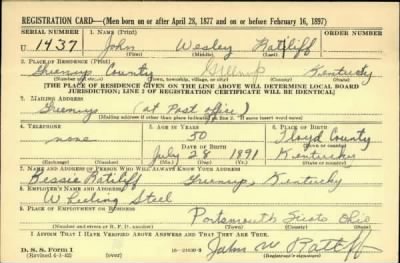 REGISTRATION CARD—(Men born on or after April 28, 1877 and on or before February 16, 1897)
SERIAL NUMBER 1. NAME (Print) ORDER NUMBER
U 1437 John Wesley Ratliff
(First) (Middle) (Last)
2. PLACE OF RESIDENCE (Print)
Greenup County Greenup Kentucky
(Number and street) (Town, township, village, or city) (County) (State)
[THE PLACE OF RESIDENCE GIVEN ON THE LINE ABOVE WILL DETERMINE LOCAL BOARD
JURISDICTION; LINE 2 OF REGISTRATION CERTIFICATE WILL BE IDENTICAL]
3. MAILING ADDRESS
Greenup (at Post office)
(Mailing address if other than place indicated on line 2. If same insert word same)
4. TELEPHONE 5. AGE IN YEARS 6. PLACE OF BIRTH
none 50 Floyd County
DATE OF BIRTH (Town or county)
July 28 1891 Kentucky
(Exchange) (Number) (Mo.) (Day) (Yr.) (State or country)
7. NAME AND ADDRESS OF PERSON WHO WILL ALWAYS KNOW YOUR ADDRESS
Bessie Ratliff Greenup, Kentucky
8. EMPLOYER'S NAME AND ADDRESS
Wheeling Steel
9. PLACE OF EMPLOYMENT OR BUSINESS
Portsmouth Scioto Ohio
(Number and street or R. F. D. number) (Town) (County) (State)
I AFFIRM THAT I HAVE VERIFIED ABOVE ANSWERS AND THAT THEY ARE TRUE.
D. S. S. Form 1
(Revised 4-1-42) (over) John W Ratliff
(Registrant's signature)